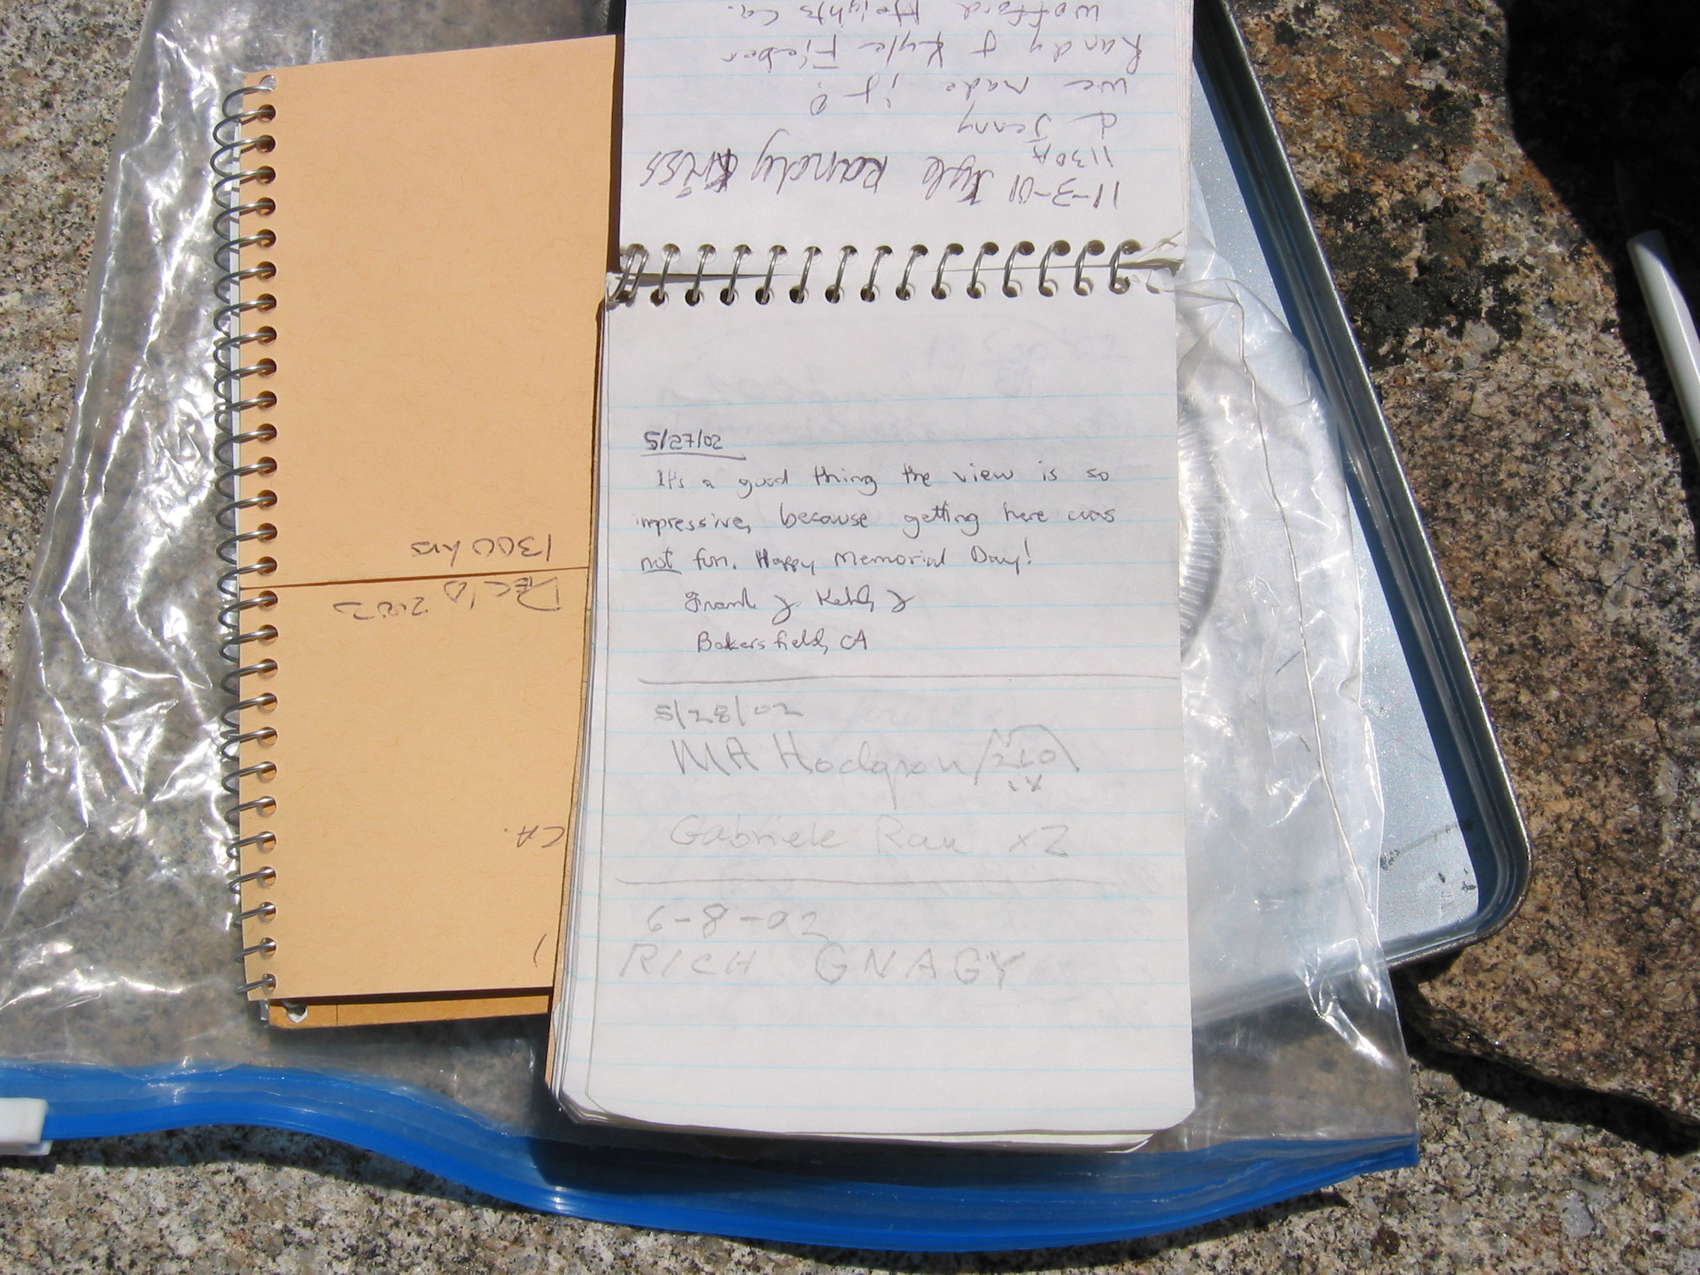 11-3-01 Kyle Randy Kriss
1130A
& Jenny
we made it!
Randy & Kyle Fieber
Wofford Heights Ca.
5/27/02
It's a good thing the view is so
impressive, because getting here was
not fun. Happy Memorial Day!
Frank J.
Bakersfield, CA
5/28/02
MA Hodgson
Gabriele Rau x2
6-8-02
RICH GNAGY
1300 hrs
DEC 2003
CA.